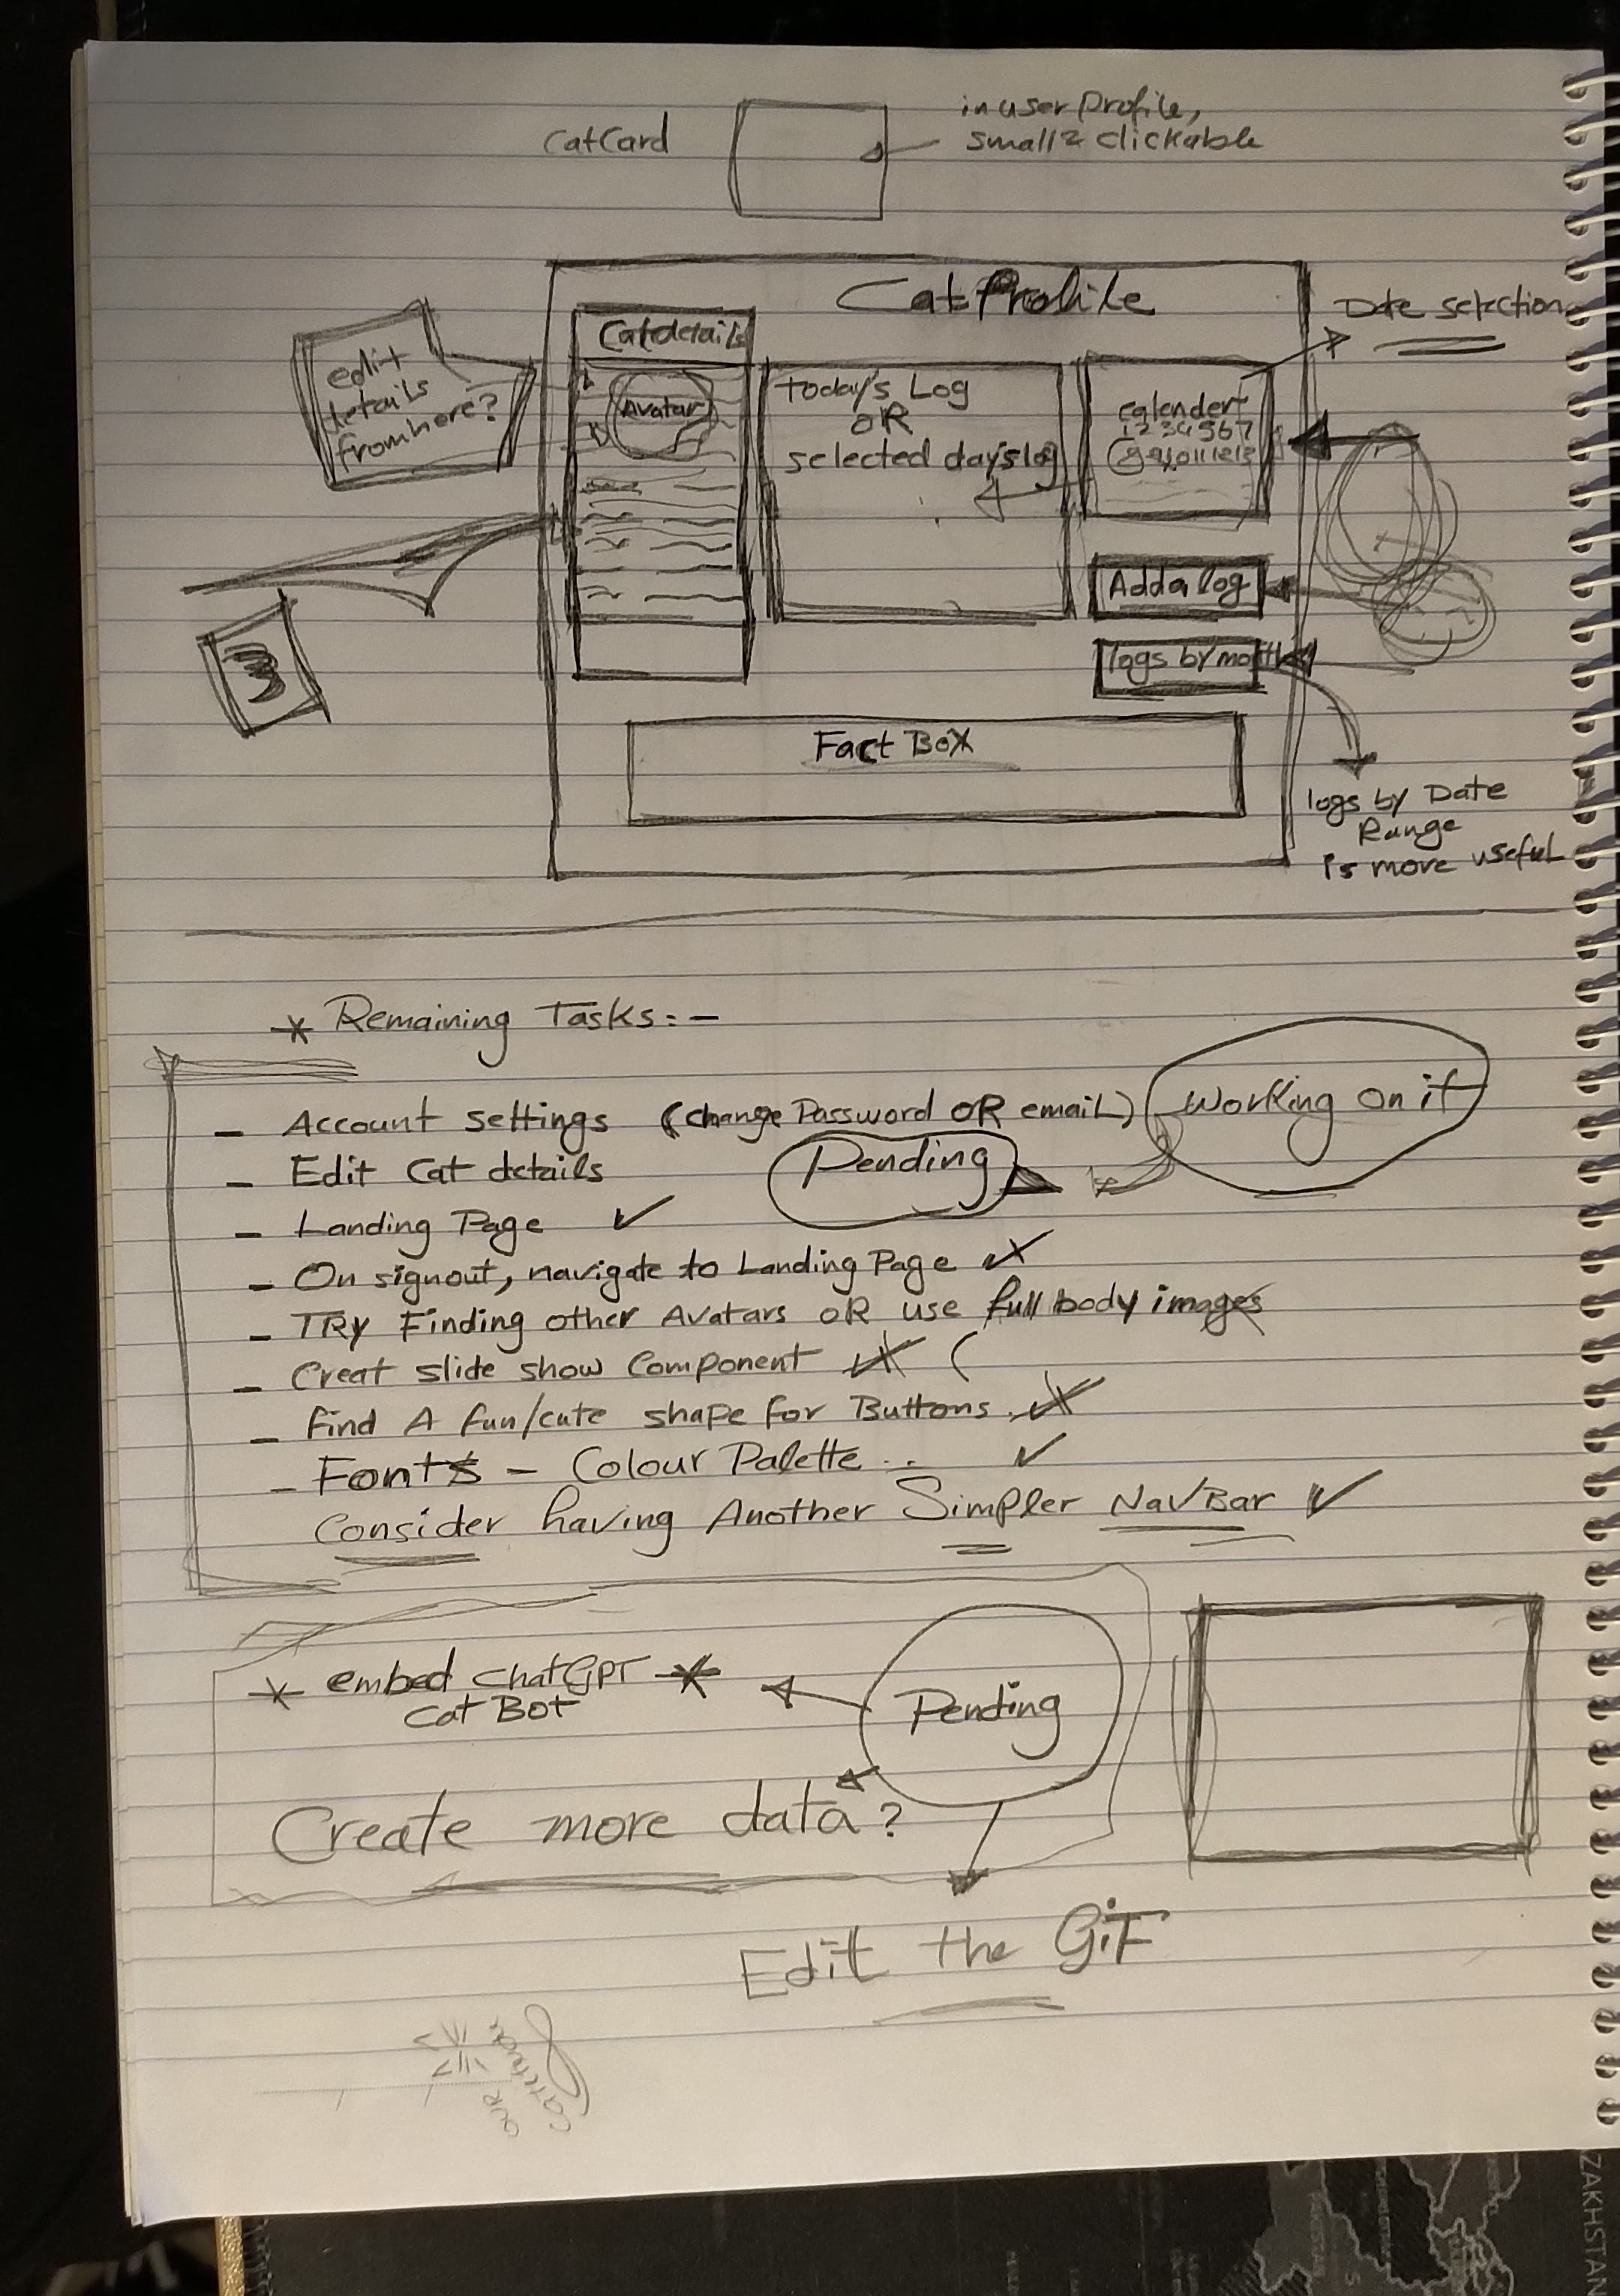 CatCard
in user Profile,
small & clickable
Cat Profile
Date selection
Cat details
edit
details
from here?
Avatar
Today's Log
OR
selected day's log
calender
1 2 3 4 5 6 7
8 9 10 11 12 13
Add a log
logs by month
3
Fact Box
logs by Date
Range
is more useful
* Remaining Tasks:-
- Account settings (change Password OR email) Working on it
- Edit Cat details Pending
- Landing Page ✓
- On signout, navigate to Landing Page
- TRY Finding other Avatars OR use full body images
- Creat slide show Component (
- find A fun/cute shape for Buttons.
- Fonts - Colour Palette .. ✓
Consider having Another Simpler NavBar ✓
* embed ChatGPT *
Cat Bot
Pending
Create more data?
Edit the GiF
OUR